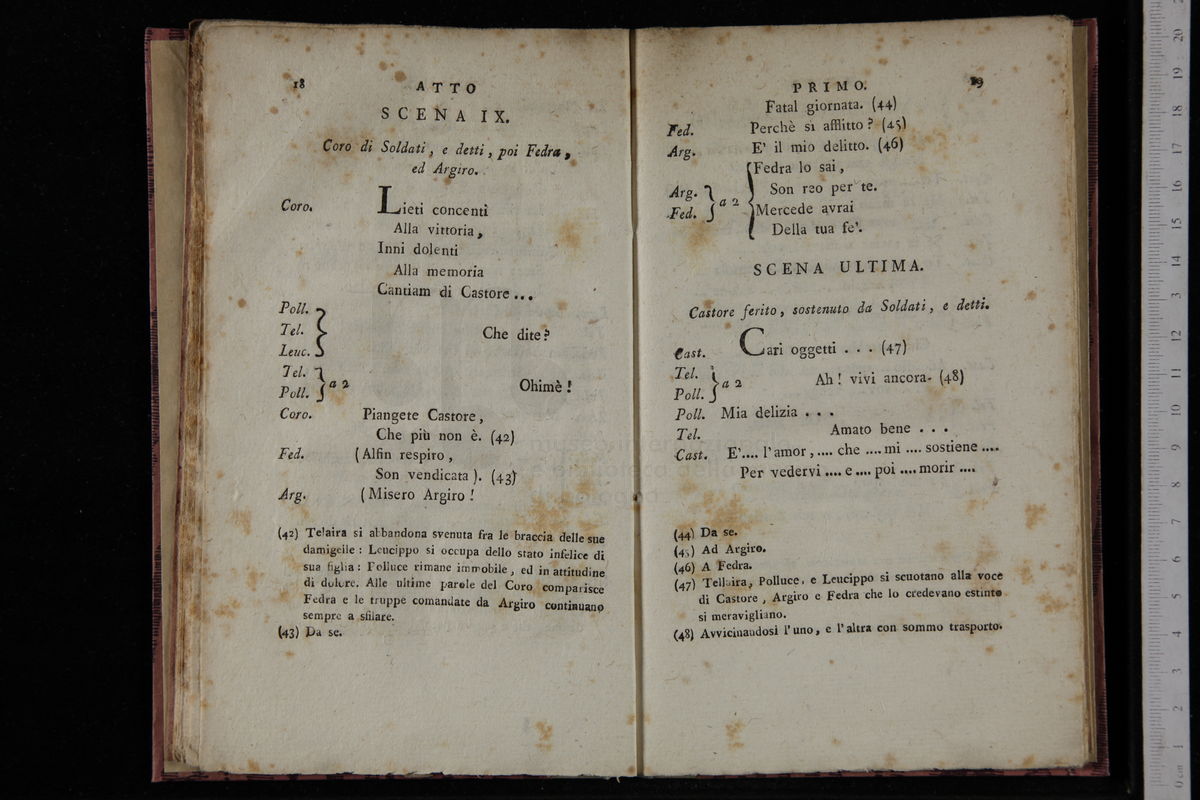 18
ATTO
SCENA IX.
Coro di Soldati, e detti, poi Fedra,
ed Argiro.
Coro. Lieti concenti
Alla vittoria,
Inni dolenti
Alla memoria
Cantiam di Castore...
Poll.
Tel. } Che dite?
Leuc.
Tel. } a 2 Ohimè!
Poll.
Coro. Piangete Castore,
Che più non è. (42)
Fed. (Alfin respiro,
Son vendicata). (43)
Arg. (Misero Argiro!
(42) Telaira si abbandona svenuta fra le braccia delle sue
damigelle: Leucippo si occupa dello stato infelice di
sua figlia: Polluce rimane immobile, ed in attitudine
di dolore. Alle ultime parole del Coro comparisce
Fedra e le truppe comandate da Argiro continuano
sempre a sfilare.
(43) Da se.
PRIMO. 19
Fatal giornata. (44)
Fed. Perchè sì afflitto? (45)
Arg. E' il mio delitto. (46)
{Fedra lo sai,
Arg. } a 2 Son reo per te.
Fed. {Mercede avrai
Della tua fe'.
SCENA ULTIMA.
Castore ferito, sostenuto da Soldati, e detti.
Cast. Cari oggetti . . . (47)
Tel. } a 2 Ah! vivi ancora. (48)
Poll.
Poll. Mia delizia . . .
Tel. Amato bene . . .
Cast. E'.... l'amor,.... che ....mi .... sostiene ....
Per vedervi .... e .... poi .... morir ....
(44) Da se.
(45) Ad Argiro.
(46) A Fedra.
(47) Tellaira, Polluce, e Leucippo si scuotano alla voce
di Castore, Argiro e Fedra che lo credevano estinto
si meravigliano.
(48) Avvicinandosi l'uno, e l'altra con sommo trasporto.
museo internazionale
e biblioteca della
di bologna
0 cm 1 2 3 4 5 6 7 8 9 10 11 12 13 14 15 16 17 18 19 20